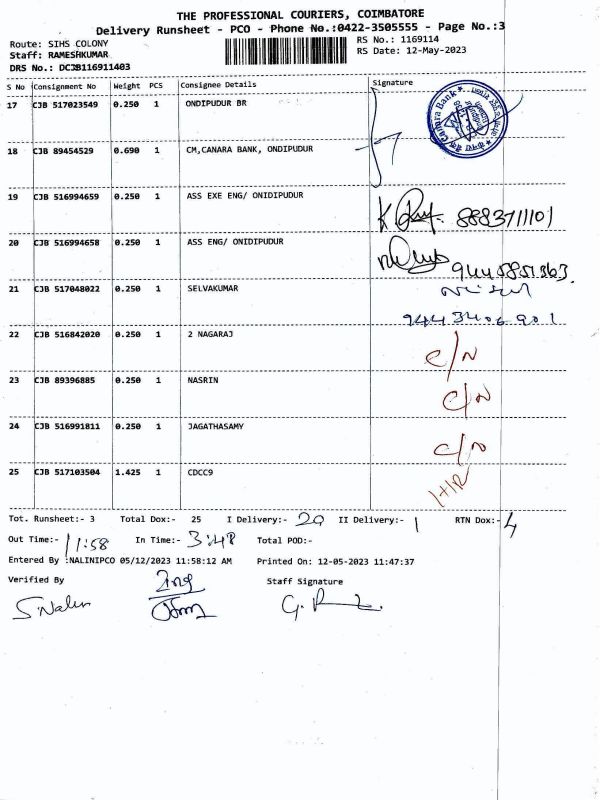 THE PROFESSIONAL COURIERS, COIMBATORE
Delivery Runsheet - PCO - Phone No.:0422-3505555 - Page No.:3
Route: SIHS COLONY
RS No.: 1169114
Staff: RAMESHKUMAR
RS Date: 12-May-2023
DRS No.: DCJB116911403
S No Consignment No Weight PCS Consignee Details Signature
17 CJB 517023549 0.250 1 ONDIPUDUR BR
Canara Bank
18 CJB 89454529 0.690 1 CM,CANARA BANK, ONDIPUDUR
19 CJB 516994659 0.250 1 ASS EXE ENG/ ONIDIPUDUR
8883711101
20 CJB 516994658 0.250 1 ASS ENG/ ONIDIPUDUR
9445851363
21 CJB 517048022 0.250 1 SELVAKUMAR
9443406901
22 CJB 516842020 0.250 1 2 NAGARAJ C/N
23 CJB 89396885 0.250 1 NASRIN C/N
24 CJB 516991811 0.250 1 JAGATHASAMY C/N
25 CJB 517103504 1.425 1 CDCC9
Tot. Runsheet:- 3 Total Dox:- 25 I Delivery:- 20 II Delivery:- 1 RTN Dox:- 4
Out Time:- 11:58 In Time:- 3:48 Total POD:-
Entered By :NALINIPCO 05/12/2023 11:58:12 AM Printed On: 12-05-2023 11:47:37
Verified By Staff Signature
S.Nalin